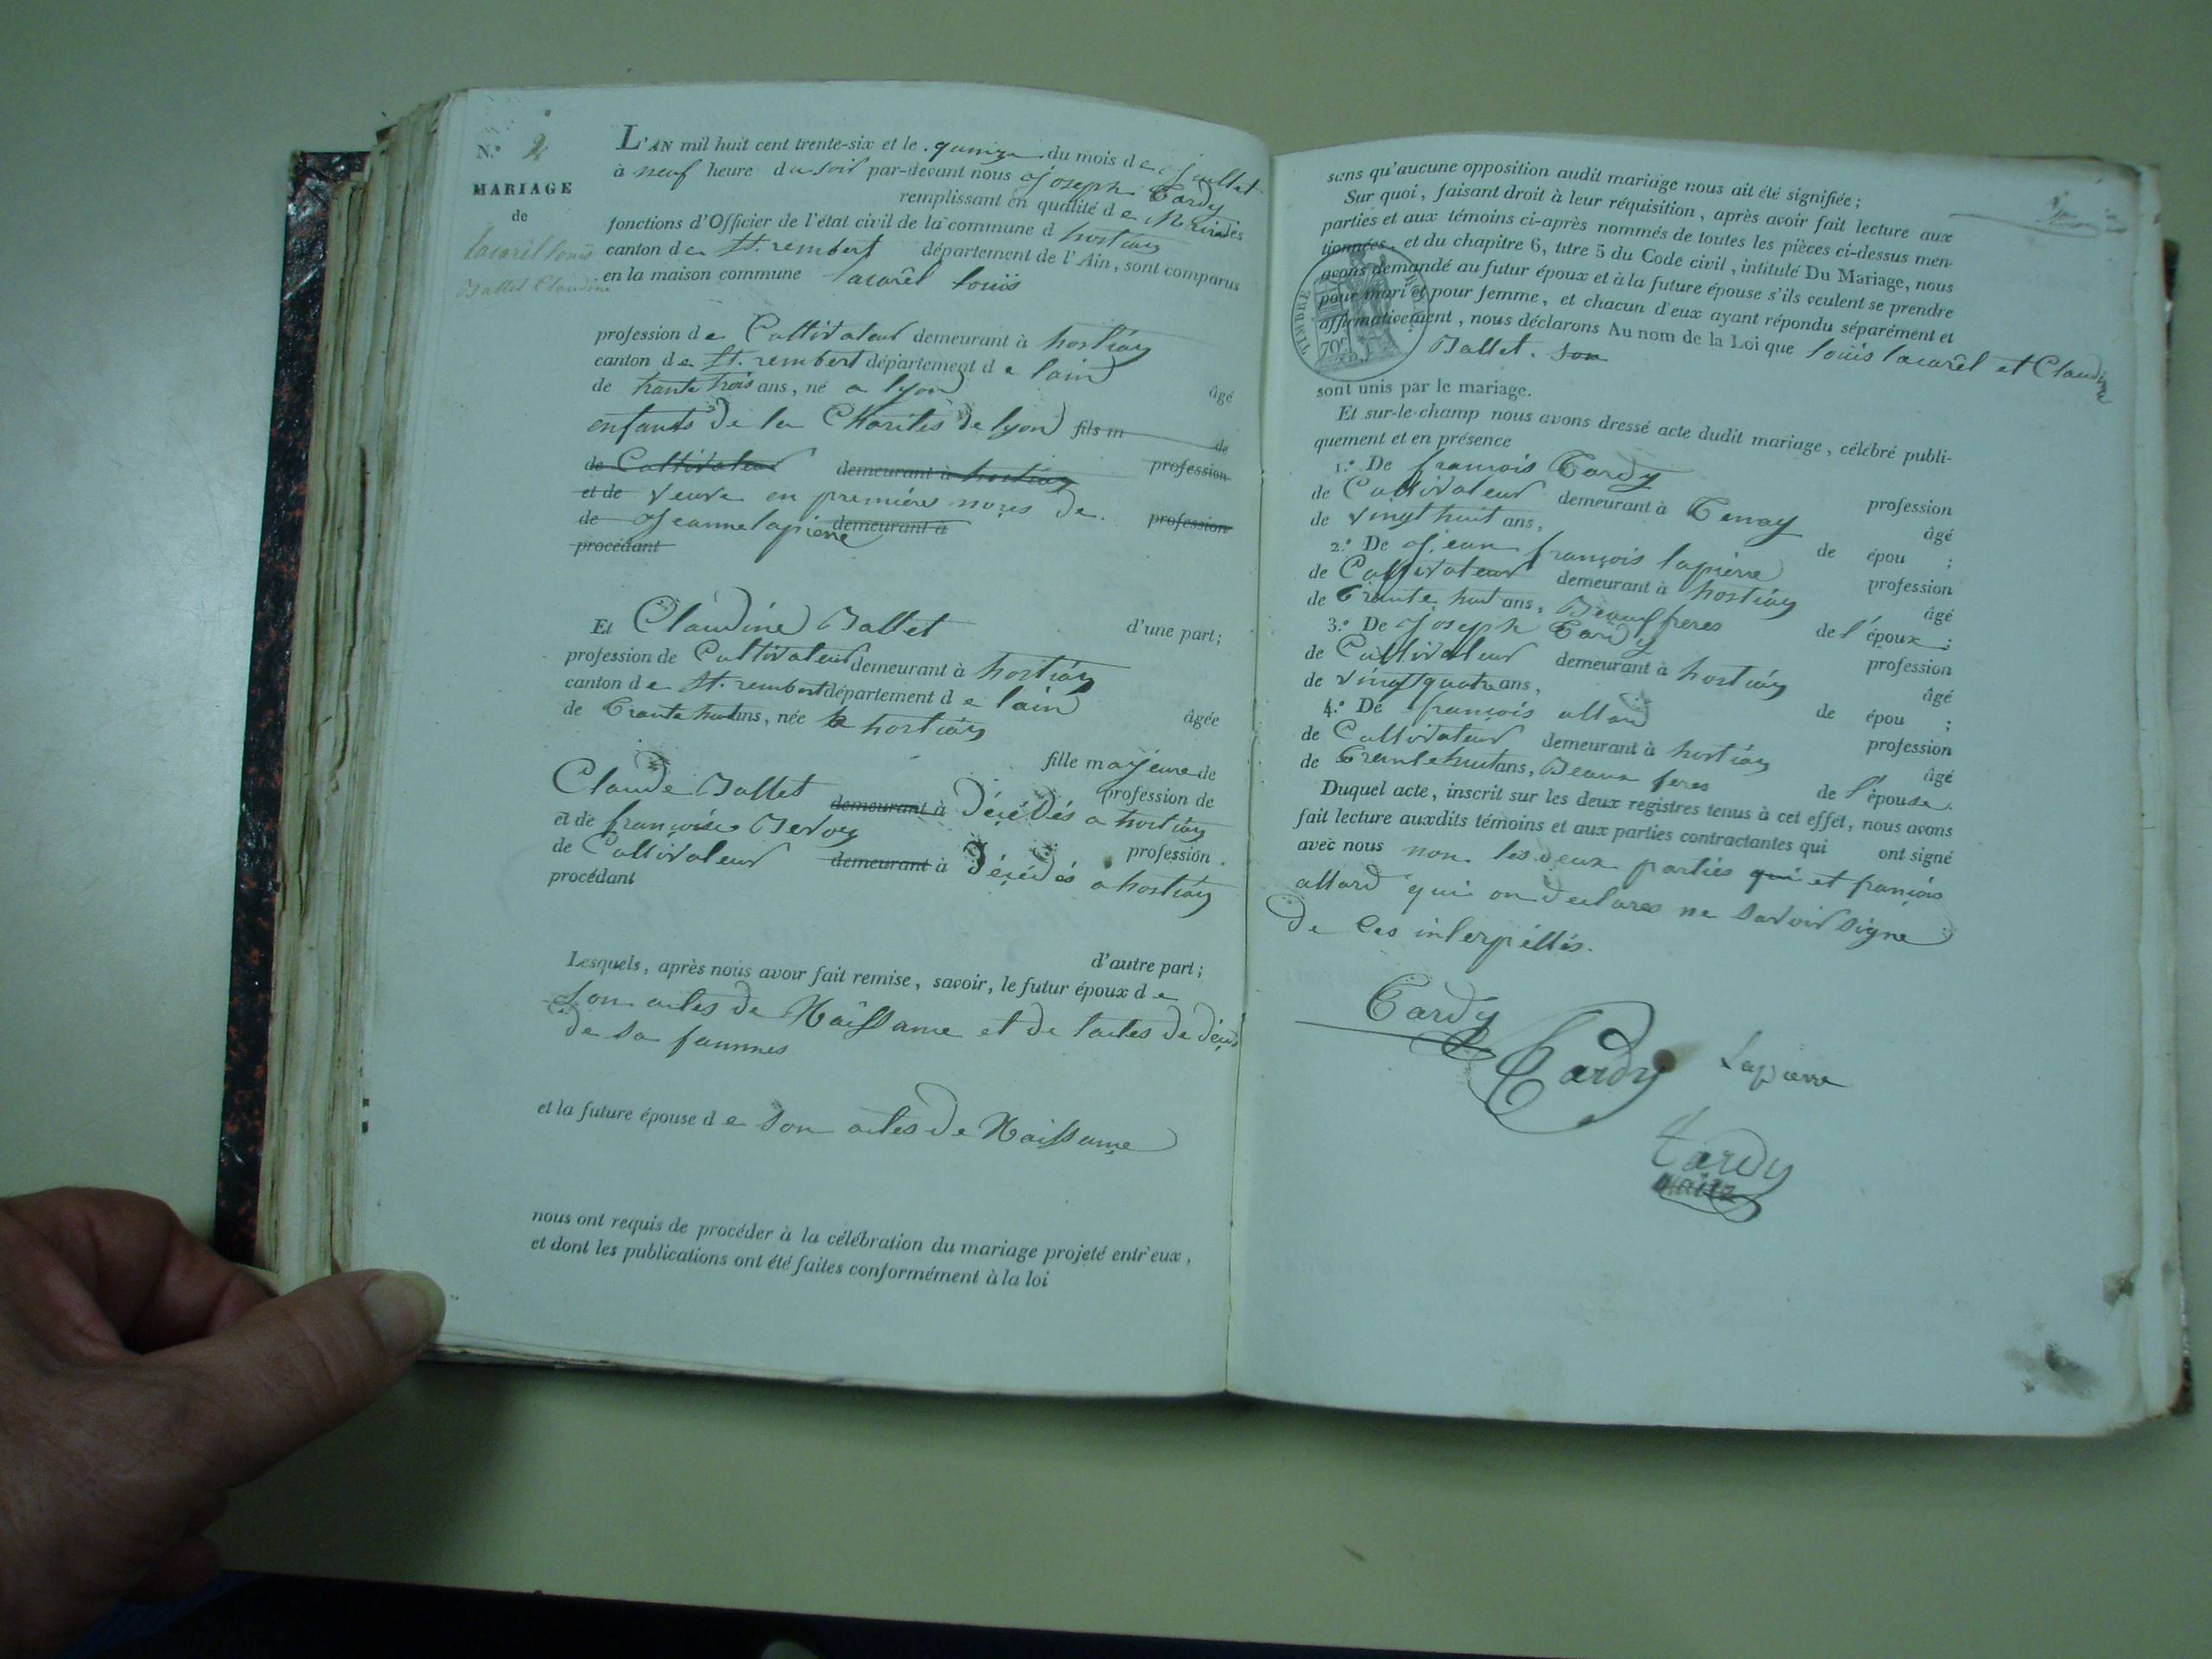 N.º 2
MARIAGE
de
Lacarêl Louis
Ballet Claudine
L'AN mil huit cent trente-six et le quinze du mois de juillet
à neuf heure du soir par-devant nous joseph Tardy
remplissant en qualité de Maire les
fonctions d'Officier de l'état civil de la commune d hostiaz
canton de St. rembert département de l'Ain, sont comparus
en la maison commune lacarêl louis
profession de Cultivateur demeurant à hostiaz
canton de St. rembert département de lain âgé
de trante trois ans, né a lyon
enfants de la Charités de lyon fils m de
de Cultivateur demeurant à hostiaz profession
et de veuve en première noçes de profession
de Jeanne lapierre demeurant à
procédant
d'une part;
Et Claudine Ballet
profession de Cultivateur demeurant à hostiaz
canton de St. rembert département de lain âgée
de trante huit ans, née a hostiaz
fille mayeure de
Claude Ballet profession de
demeurant à Décédés a hostiaz
et de françoise Bevoy profession
de Cultivateur demeurant à Décédés a hostiaz
procédant
d'autre part;
Lesquels, après nous avoir fait remise, savoir, le futur époux de
son actes de Naissance et de lactes de déçès
de sa fammes
et la future épouse de son actes de Naissance
nous ont requis de procéder à la célébration du mariage projeté entr'eux,
et dont les publications ont été faites conformément à la loi
sans qu'aucune opposition audit mariage nous ait été signifiée;
Sur quoi, faisant droit à leur réquisition, après avoir fait lecture aux
parties et aux témoins ci-après nommés de toutes les pièces ci-dessus men-
tionnées, et du chapitre 6, titre 5 du Code civil, intitulé Du Mariage, nous
avons demandé au futur époux et à la future épouse s'ils veulent se prendre
pour mari et pour femme, et chacun d'eux ayant répondu séparément et
affirmativement, nous déclarons Au nom de la Loi que louis lacarêl et Claudine
Ballet. son
TIMBRE
70c
sont unis par le mariage.
Et sur-le-champ nous avons dressé acte dudit mariage, célébré publi-
quement et en présence
1.º De francois Tardy profession
de Cultivateur demeurant à Tenay âgé
de vingt huit ans, de épou ;
2.º De jean françois lapierre profession
de Cultivateur demeurant à hostiaz âgé
de trante huit ans, Beauf freres de l'époux;
3.º De joseph Tardy profession
de Cultivateur demeurant à hostiaz âgé
de vingt quatre ans, de épou ;
4.º De françois allard profession
de Cultivateur demeurant à hostiaz âgé
de trente huit ans, Beaux feres de l'épouse.
Duquel acte, inscrit sur les deux registres tenus à cet effet, nous avons
fait lecture auxdits témoins et aux parties contractantes qui ont signé
avec nous non les deux parties qui et françois
allard qui on declares ne savoir signe
de ces interpéllés.
Tardy
Tardy
Lapierre
Tardy
maire